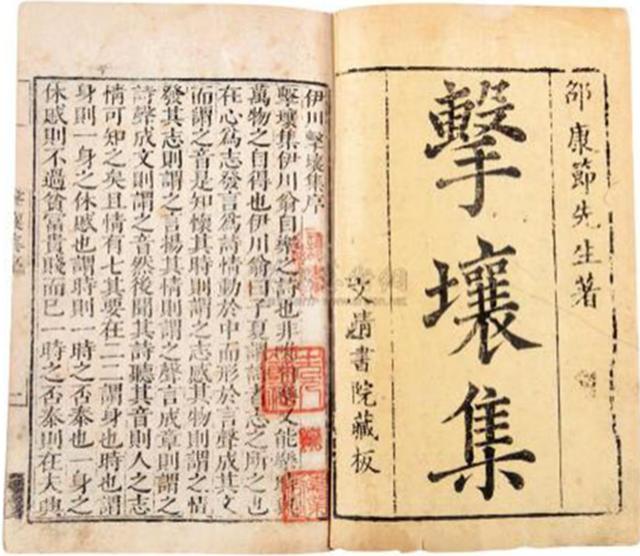 邵康節先生著
擊壤集
文靖書院藏板
伊川擊壤集序
擊壤集伊川翁自樂之詩也非唯自樂又能樂時與
萬物之自得也伊川翁曰子夏謂詩者志之所之也
在心為志發言爲詩情動於中而形於言聲成其文
而謂之音是知懷其時則謂之志感其物則謂之情
發其志則謂之言揚其情則謂之聲言成章則謂之
詩聲成文則謂之音然後聞其詩聽其音則人之志
情可知之矣且情有七其要在二二謂身也時也謂
身則一身之休慼也謂時則一時之否泰也一身之
休慼則不過貧富貴賤而已一時之否泰則在夫興